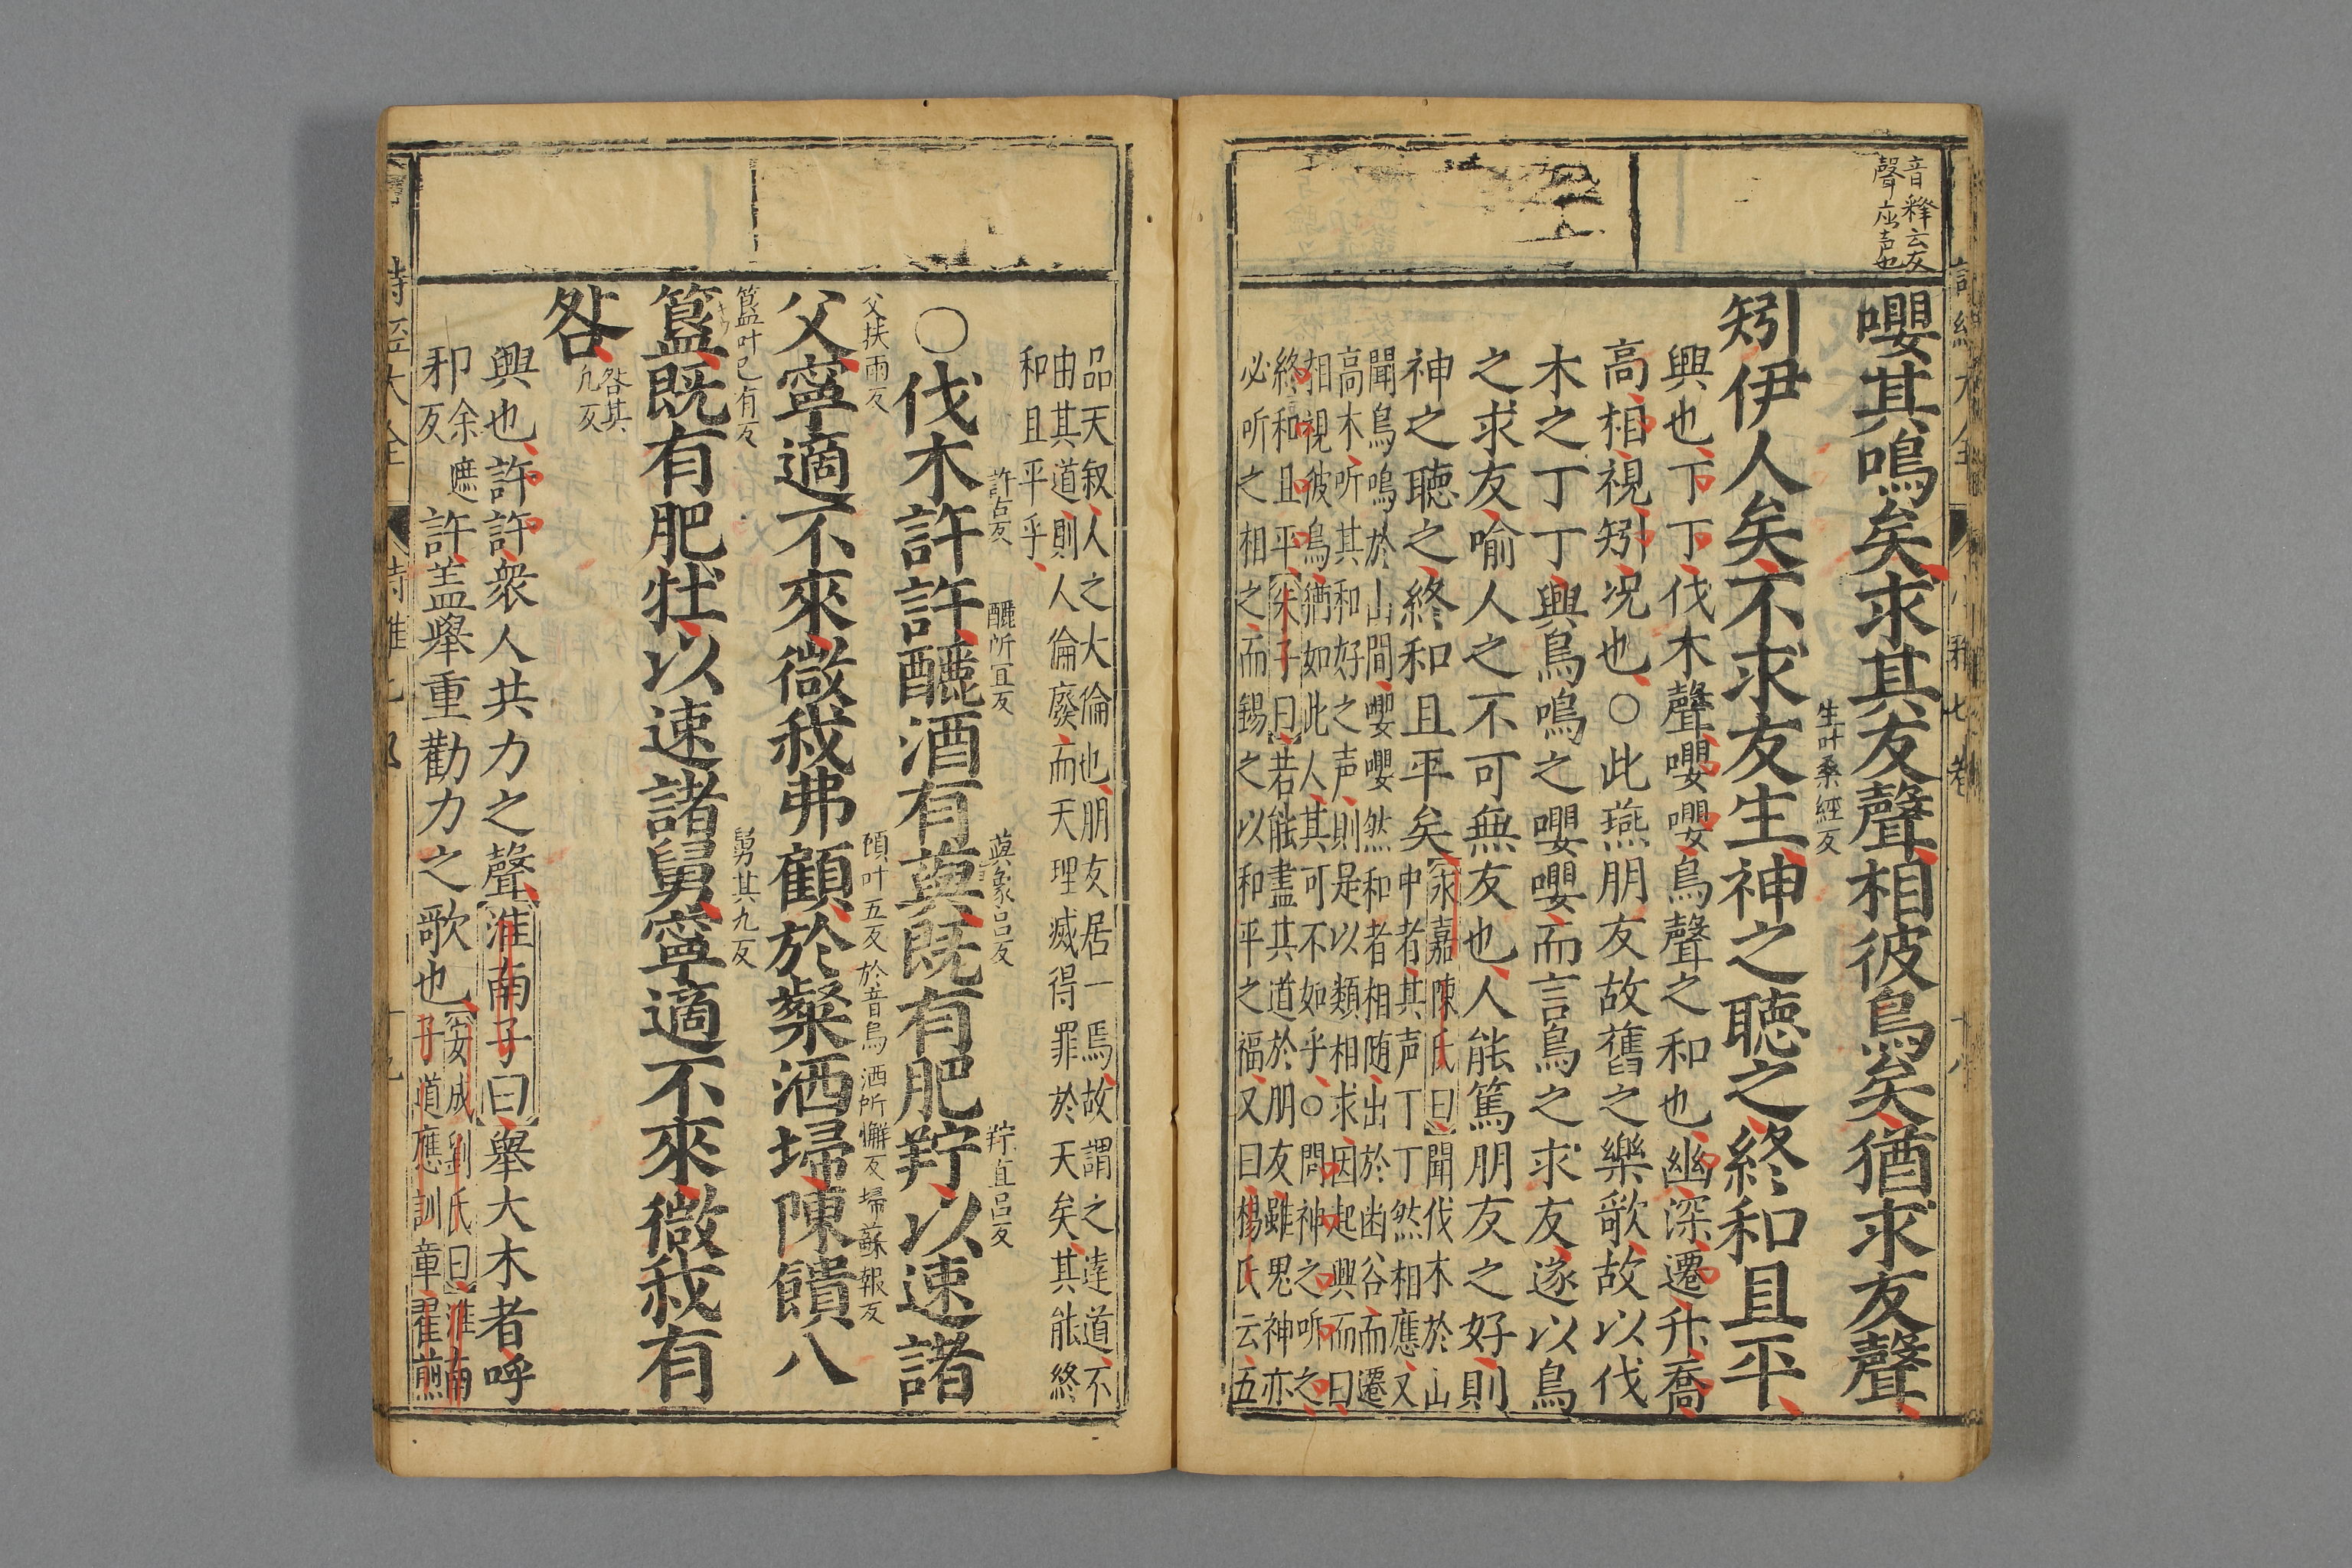 音釋云友
聲应声也
嚶其鳴矣求其友聲相彼鳥矣猶求友聲
生叶桑經反
矧伊人矣不求友生神之聽之終和且平
興也丁丁伐木聲嚶嚶鳥聲之和也幽深遷升喬
高相視矧况也○此燕朋友故舊之樂歌故以伐
木之丁丁興鳥鳴之嚶嚶而言鳥之求友遂以鳥
之求友喻人之不可無友也人能篤朋友之好則
神之聽之終和且平矣
永嘉陳氏曰聞伐木於山
中者其声丁丁然相應又
聞鳥鳴於山間嚶嚶然和者相随出於幽谷而遷
高木听其和好之声則是以類相求因起興而曰
相視彼鳥猶如此人其可不如乎○問神之听之
終和且平朱子曰若能盡其道於朋友雖鬼神亦
必听之相之而錫之以和平之福又曰楊氏云五
品天叙人之大倫也朋友居一焉故謂之達道不
由其道則人倫廢而天理滅得罪於天矣其能終
和且平乎
許古反 醹所宜反 藇象呂反 羜直呂反
○伐木許許醹酒有藇既有肥羜以速諸
父扶雨反 顧叶五反於音烏 洒所懈反埽蘇報反
父寧適不來微我弗顧於粲洒埽陳饋八
簋叶已有反 舅其九反
簋既有肥牡以速諸舅寧適不來微我有
咎
咎其
九反
興也許許衆人共力之聲淮南子曰舉大木者呼
邪余
反
遮許盖舉重勸力之歌也
安成劉氏曰淮南
子道應訓章翟煎
詩經大全